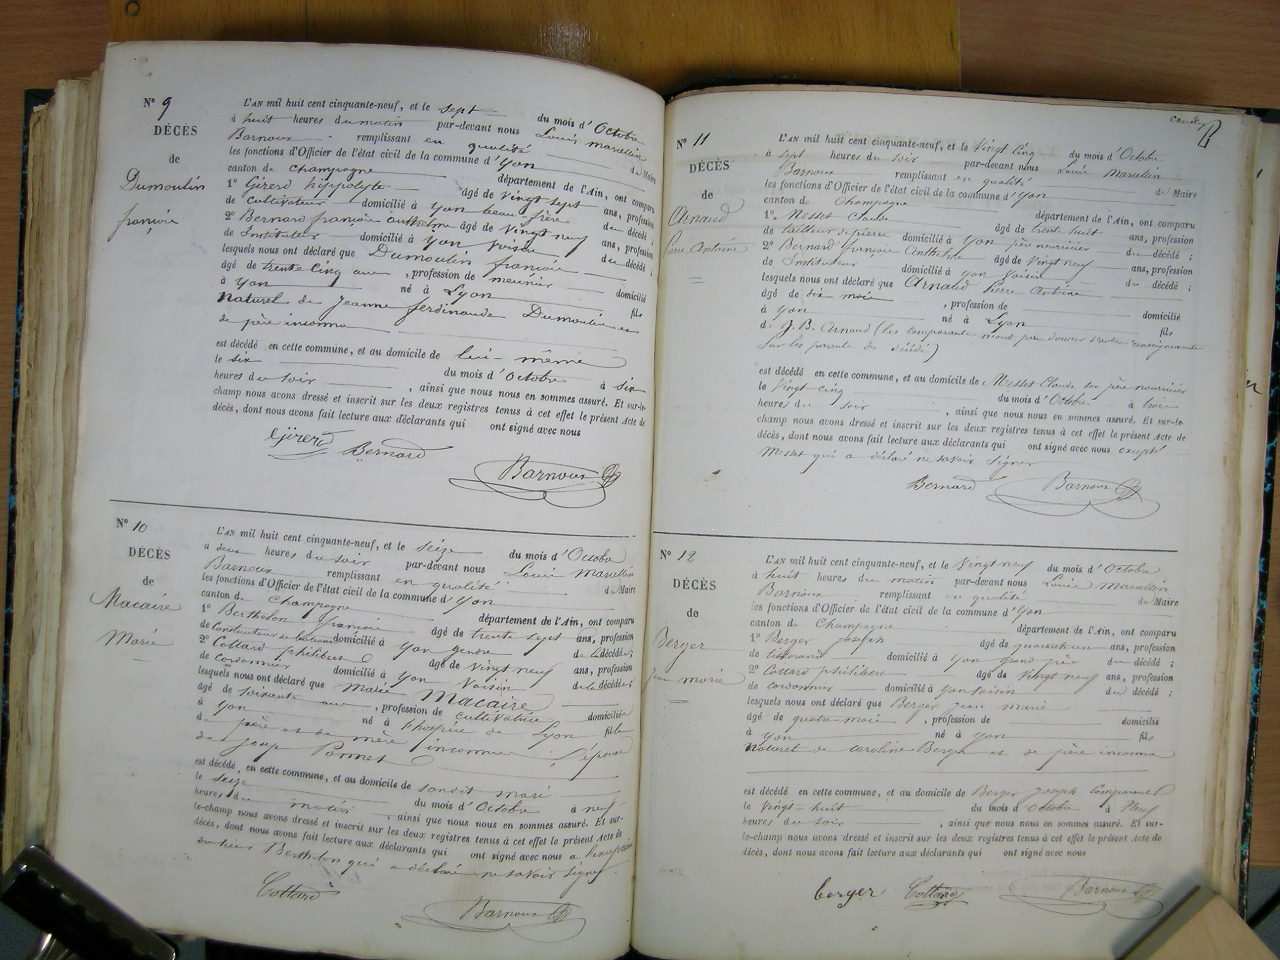 N° 9
DÉCÈS
de
Dumoulin
françois
L'AN mil huit cent cinquante-neuf, et le sept du mois d'Octobre
à huit heures du matin par-devant nous Louis Marcellin
Barnoux remplissant en qualité de Maire
les fonctions d'Officier de l'état civil de la commune d'Yon
canton de Champagne département de l'Ain, ont comparu
1° Girerd hippolyte âgé de Vingt sept ans, profession
de Cultivateur domicilié à Yon beau-frère du décédé ;
2° Bernard françois anthelme âgé de Vingt neuf ans, profession
de Instituteur domicilié à Yon Voisin du décédé ;
lesquels nous ont déclaré que Dumoulin françois
âgé de trente cinq ans, profession de meunier domicilié
à Yon né à Lyon fils
naturel de Jeanne ferdinande Dumoulin et
de père inconnu
est décédé en cette commune, et au domicile de lui-même
le six du mois d'Octobre à six
heures du soir, ainsi que nous nous en sommes assuré. Et sur-le-
champ nous avons dressé et inscrit sur les deux registres tenus à cet effet le présent Acte de
décès, dont nous avons fait lecture aux déclarants qui ont signé avec nous
Girerd Bernard
Barnoux
N° 10
DÉCÈS
de
Macaire
Marie
L'AN mil huit cent cinquante-neuf, et le seize du mois d'Octobre
à deux heures du soir par-devant nous Louis Marcellin
Barnoux remplissant en qualité de Maire
les fonctions d'Officier de l'état civil de la commune d'Yon
canton de Champagne département de l'Ain, ont comparu
1° Berthelon françois âgé de trente sept ans, profession
de domicilié à Yon gendre de la décédée ;
2° Cottard philibert âgé de Vingt neuf ans, profession
de cordonnier domicilié à Yon Voisin de la décédée ;
lesquels nous ont déclaré que Marie Macaire
âgé de soixante ans, profession de cultivatrice domiciliée
à Yon né à l'hospice de Lyon fille
de père et de mère inconnus Epouse
de Ponnet
est décédé, en cette commune, et au domicile de sondit mari
le seize du mois d'Octobre à neuf
heures du matin, ainsi que nous nous en sommes assuré. Et sur-
le-champ nous avons dressé et inscrit sur les deux registres tenus à cet effet le présent Acte de
décès, dont nous avons fait lecture aux déclarants qui ont signé avec nous
Berthelon qui a déclaré ne savoir signer
Cottard
Barnoux
N° 11
DÉCÈS
de
Arnaud
Pierre Antoine
L'AN mil huit cent cinquante-neuf, et le Vingt cinq du mois d'Octobre
à sept heures du soir par-devant nous Louis Marcellin
Barnoux remplissant en qualité de Maire
les fonctions d'Officier de l'état civil de la commune d'Yon
canton de Champagne département de l'Ain, ont comparu
1° Messet Claude âgé de trente huit ans, profession
de tailleur de pierre domicilié à Yon père nourricier du décédé ;
2° Bernard françois Anthelme âgé de Vingt neuf ans, profession
de Instituteur domicilié à Yon Voisin du décédé ;
lesquels nous ont déclaré que Arnaud Pierre Antoine
âgé de six mois, profession de domicilié
à Yon né à Lyon fils
de J. B. Arnaud (les comparants nous
sur les parents du décédé)
est décédé en cette commune, et au domicile de Messet Claude son père nourricier
le Vingt cinq du mois d'Octobre à trois
heures du soir, ainsi que nous nous en sommes assuré. Et sur-le-
champ nous avons dressé et inscrit sur les deux registres tenus à cet effet le présent Acte de
décès, dont nous avons fait lecture aux déclarants qui ont signé avec nous excepté
Messet qui a déclaré ne savoir signer
Bernard Barnoux
N° 12
DÉCÈS
de
Berger
jean marie
L'AN mil huit cent cinquante-neuf, et le Vingt neuf du mois d'Octobre
à huit heures du matin par-devant nous Louis Marcellin
Barnoux remplissant en qualité de Maire
les fonctions d'Officier de l'état civil de la commune d'Yon
canton de Champagne département de l'Ain, ont comparu
1° Berger Joseph âgé de ans, profession
de tisserand domicilié à Yon grand père du décédé ;
2° Cottard philibert âgé de Vingt neuf ans, profession
de cordonnier domicilié à Yon voisin du décédé ;
lesquels nous ont déclaré que Berger jean marie
âgé de quatre mois, profession de domicilié
à Yon né à Yon fils
naturel de Caroline Berger et de père inconnu
est décédé en cette commune, et au domicile de Berger Joseph comparant
le Vingt-huit du mois d'Octobre à Neuf
heures du soir, ainsi que nous nous en sommes assuré. Et sur-
le-champ nous avons dressé et inscrit sur les deux registres tenus à cet effet le présent Acte de
décès, dont nous avons fait lecture aux déclarants qui ont signé avec nous
berger Cottard Barnoux